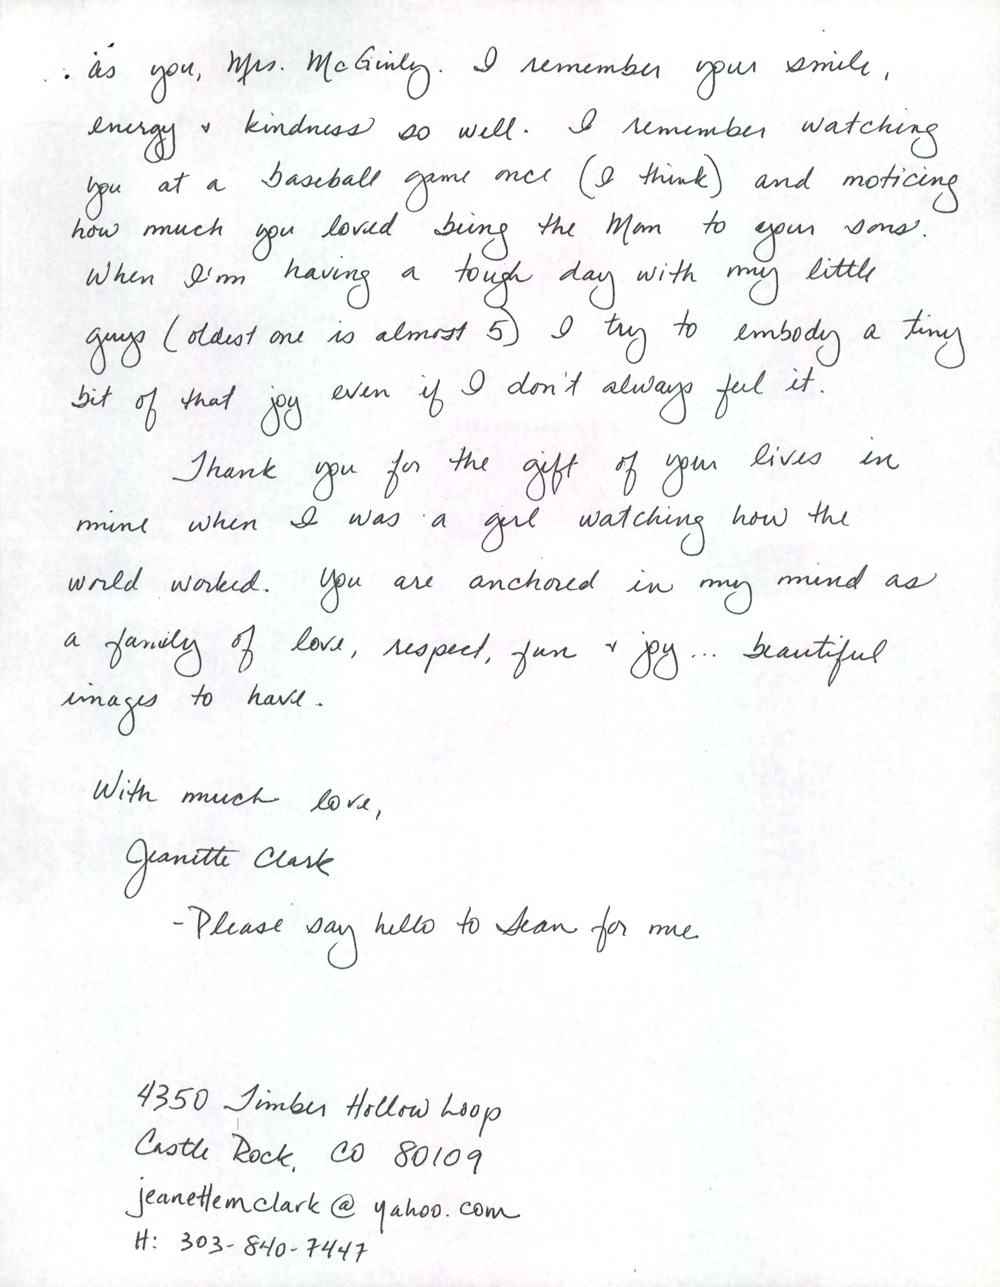 as you, Mrs. McGinly. I remember your smile,
energy & kindness so well. I remember watching
you at a baseball game once (I think) and noticing
how much you loved being the Mom to your sons.
When I'm having a tough day with my little
guys (oldest one is almost 5) I try to embody a tiny
bit of that joy even if I don't always feel it.
Thank you for the gift of your lives in
mine when I was a girl watching how the
world worked. You are anchored in my mind as
a family of love, respect, fun & joy... beautiful
images to have.
With much love,
Jeanette Clark
-Please say hello to Sean for me
4350 Timber Hollow Loop
Castle Rock, CO 80109
jeanettemclark@yahoo.com
H: 303-840-7447